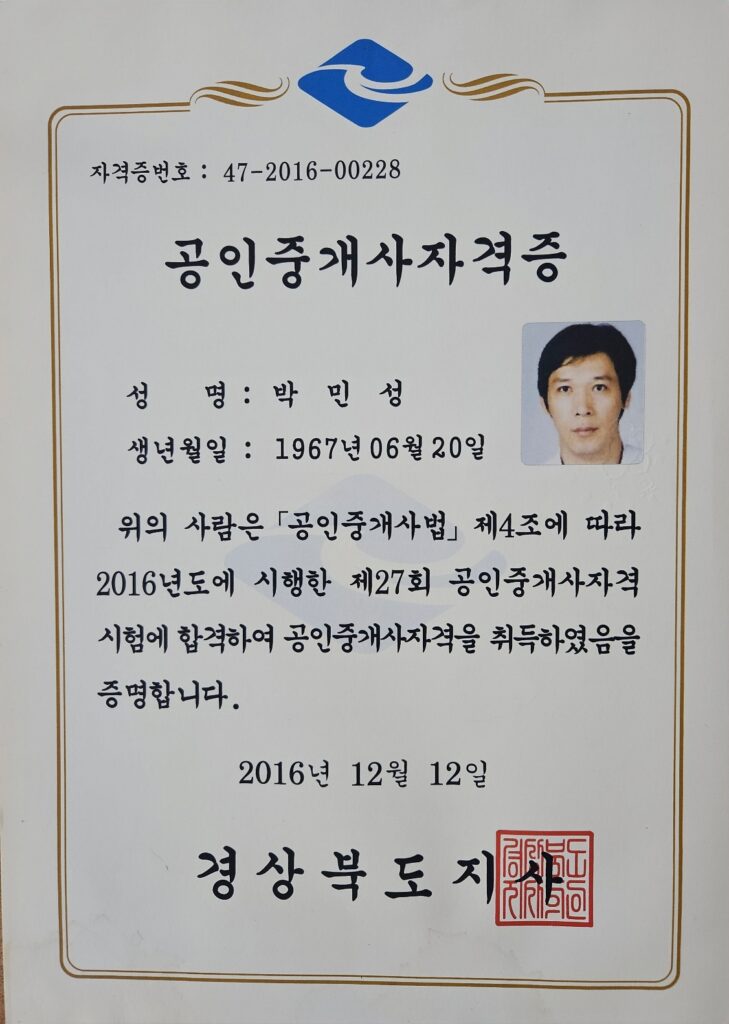 자격증번호 : 47-2016-00228
공인중개사자격증
성 명 : 박 민 성
생년월일 : 1967년 06월 20일
위의 사람은 「공인중개사법」 제4조에 따라
2016년도에 시행한 제27회 공인중개사자격
시험에 합격하여 공인중개사자격을 취득하였음을
증명합니다.
2016년 12월 12일
경상북도지사